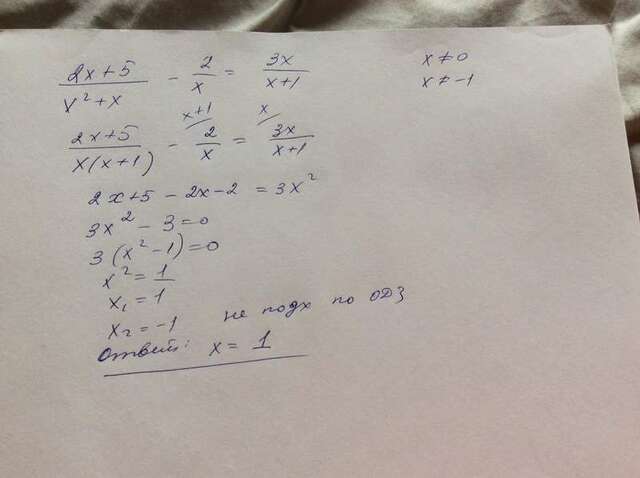 (2x+5)/(x²+x) - 2/x = 3x/(x+1)   x≠0
x≠-1
(2x+5)/(x(x+1)) - 2/x ^(x+1) = 3x/(x+1) ^x
2x+5-2x-2 = 3x²
3x²-3=0
3(x²-1)=0
x²=1
x₁=1
x₂=-1 не подх по ОДЗ
Ответ: x= 1